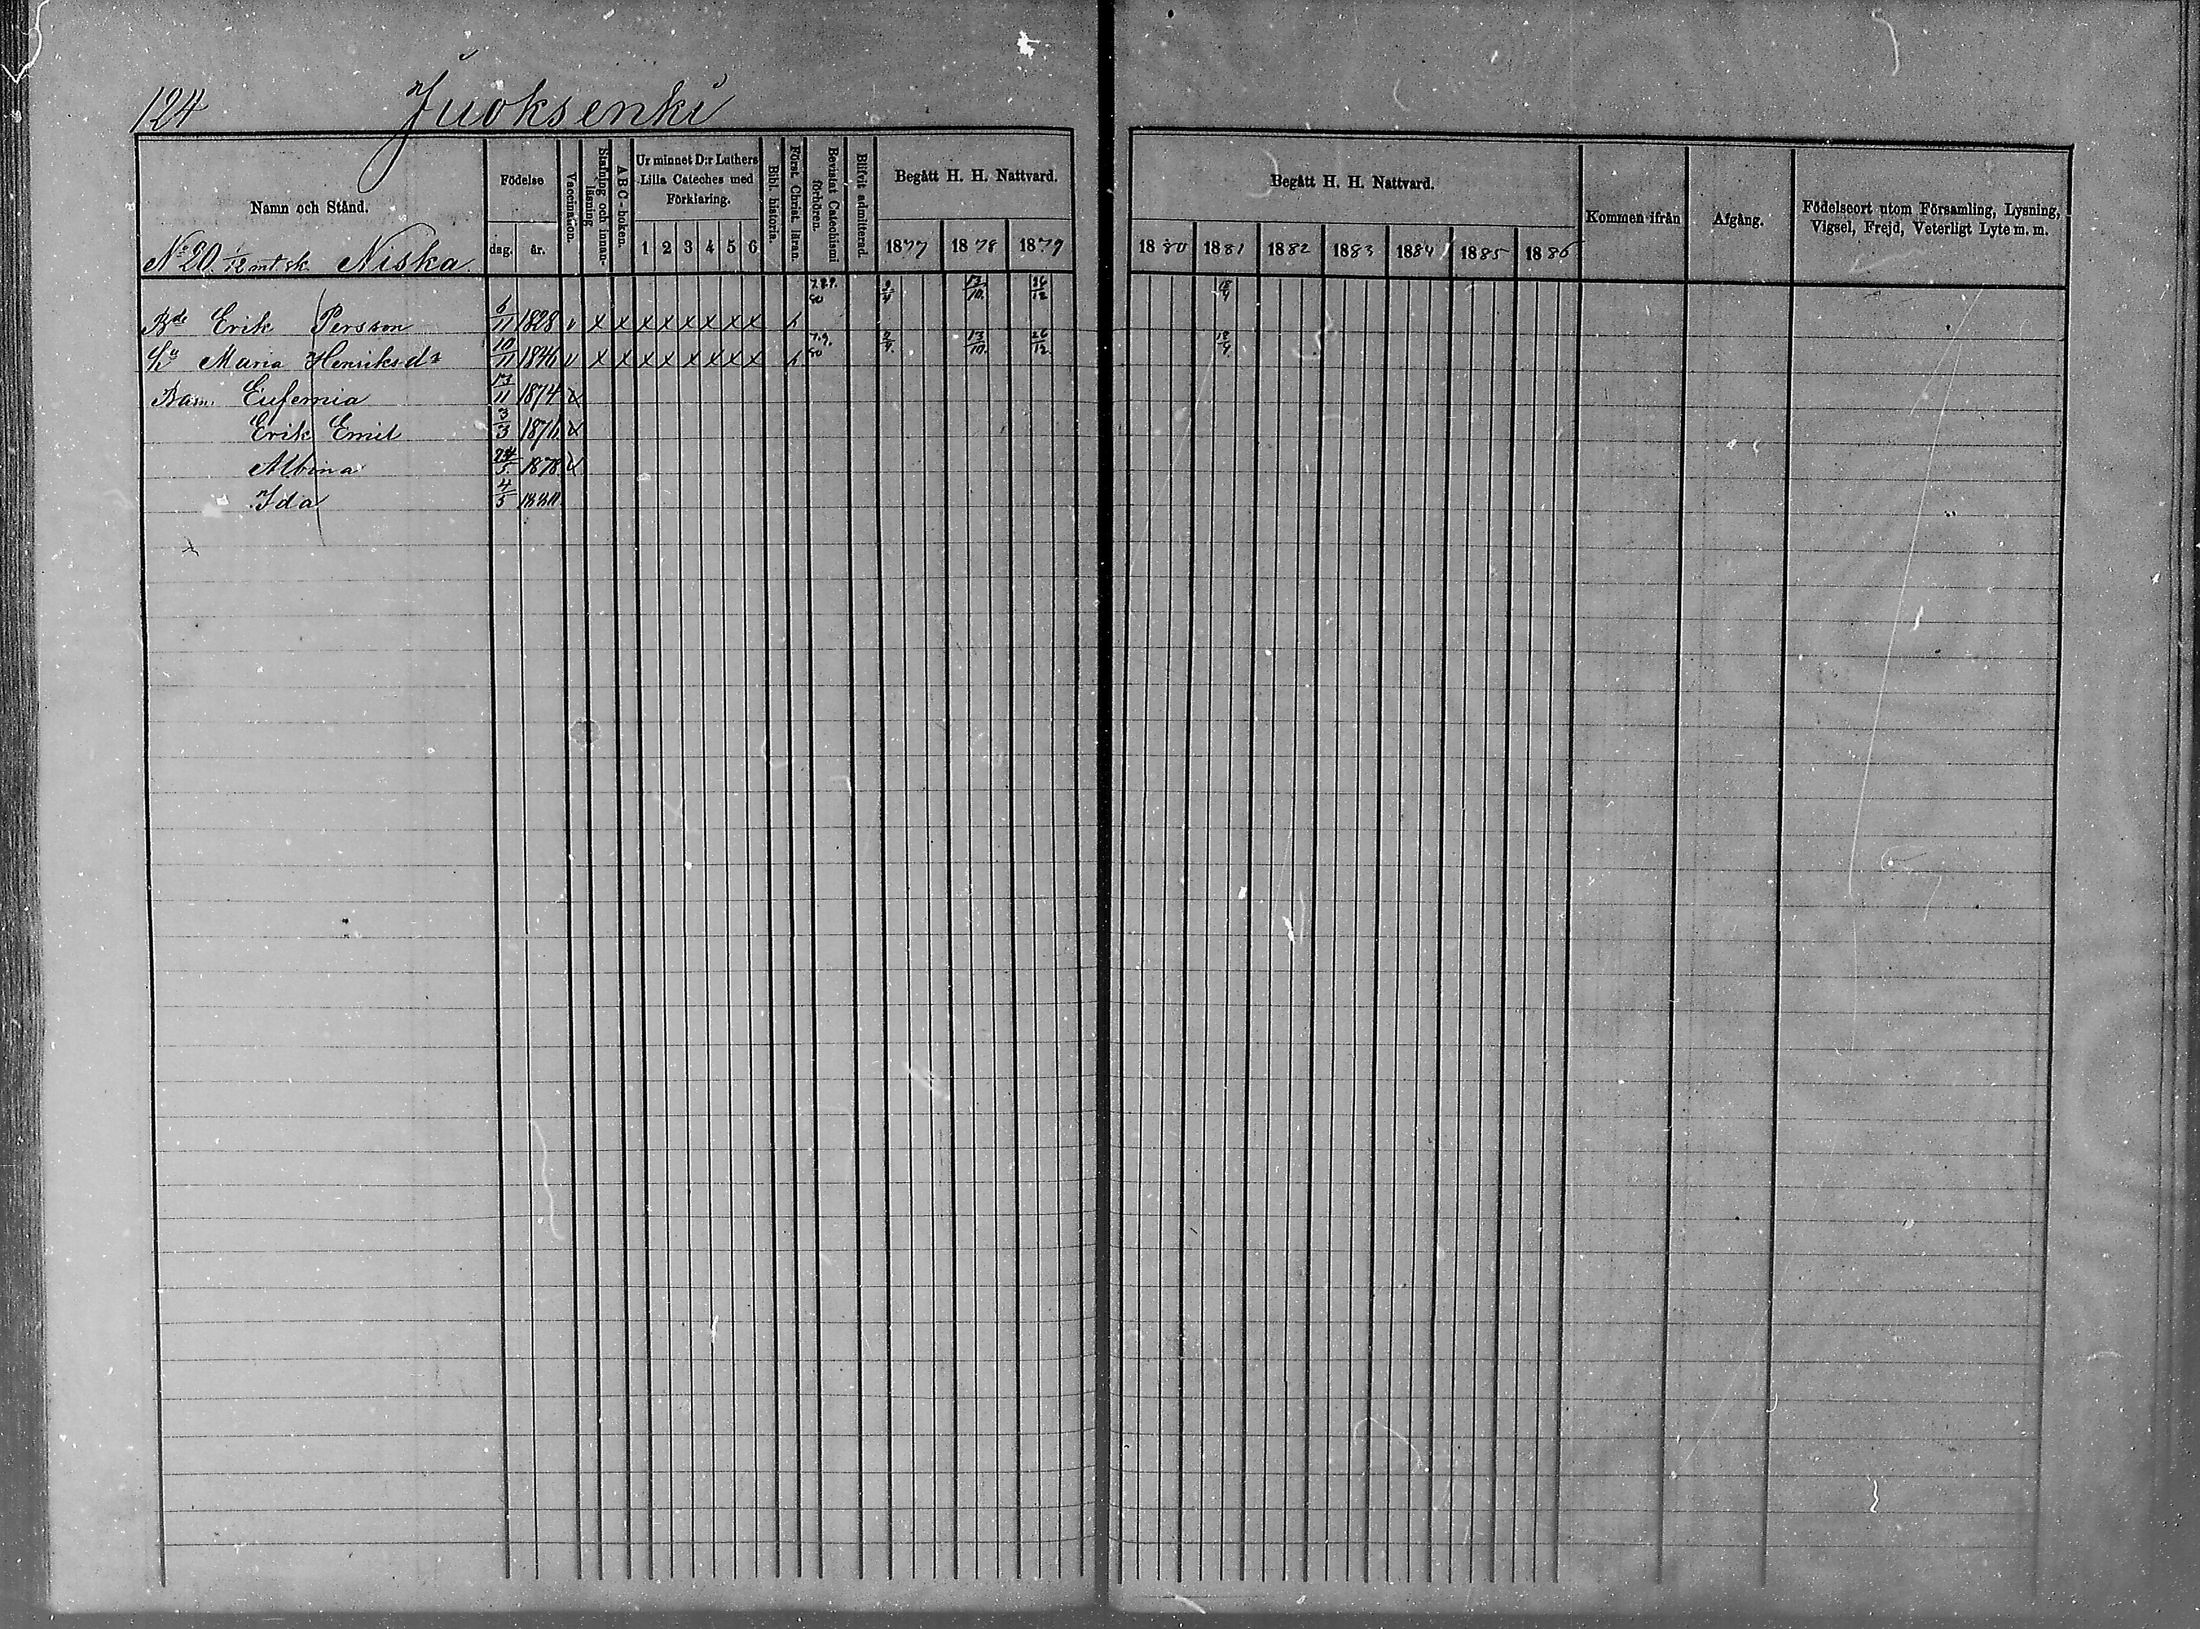 124 Juoksenki
Namn och Stånd.
Födelse
dag. år.
Vaccination.
Stafning och innan-läsning
A B C-boken.
Ur minnet D:r Luthers Lilla Cateches med Förklaring.
1 2 3 4 5 6
Bibl. historia.
Först. Christ. läran.
Bevistat Catechismi förhören.
Blifvit admitterad.
Begått H. H. Nattvard.
1877 1878 1879
Begått H. H. Nattvard.
1880 1881 1882 1883 1884 1885 1886
Kommen ifrån
Afgång.
Födelseort utom Församling, Lysning, Vigsel, Frejd, Veterligt Lyte m. m.
No 20. 1/12 mt sk. Niska
Bde Erik Persson 6/11 1828 v x x x x x x x x 7.8.9. 80 2/4 13/10. 26/12 18/4
Hu Maria Henriksdr 10/11 1846 v x x x x x x x x 7.9. 80 2/4. 13/10. 26/12 18/4
Barn. Eufemia 17/11 1874 x
Erik Emil 3/3 1876 x
Albina 24/5 1878 x
Ida 4/5 1880.
x